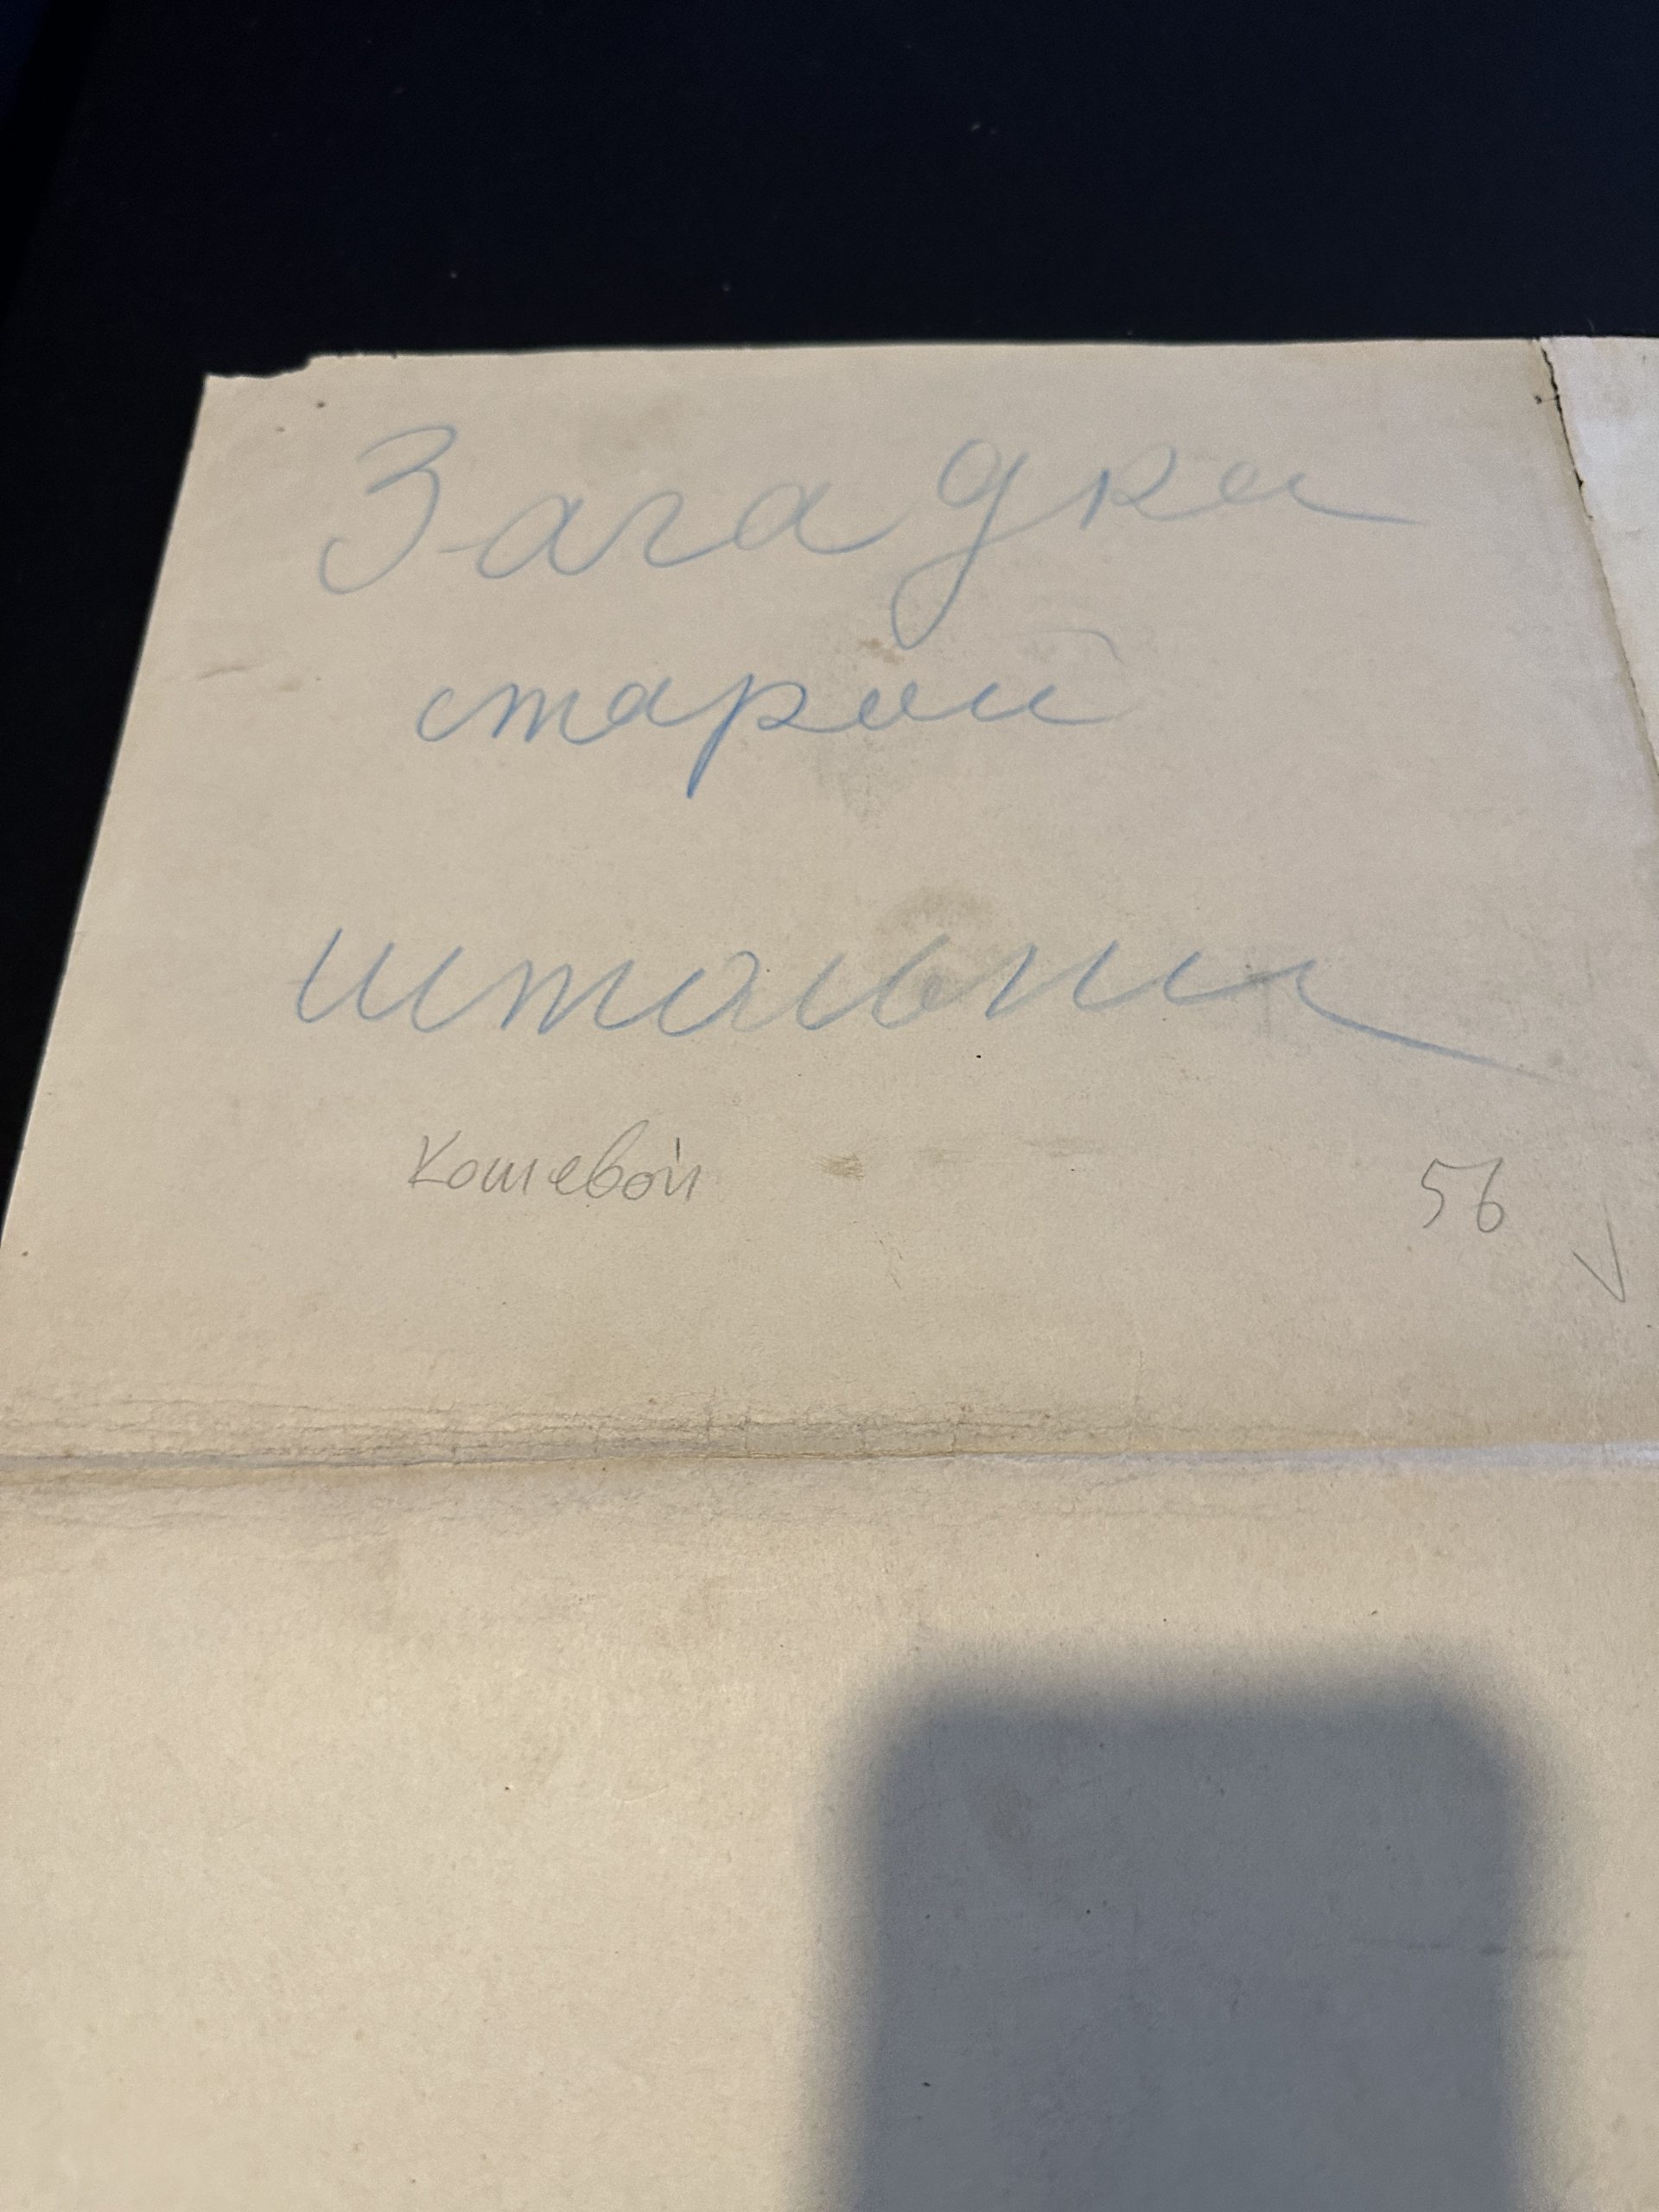 Загадка
старой
штольни
Кошевой
56